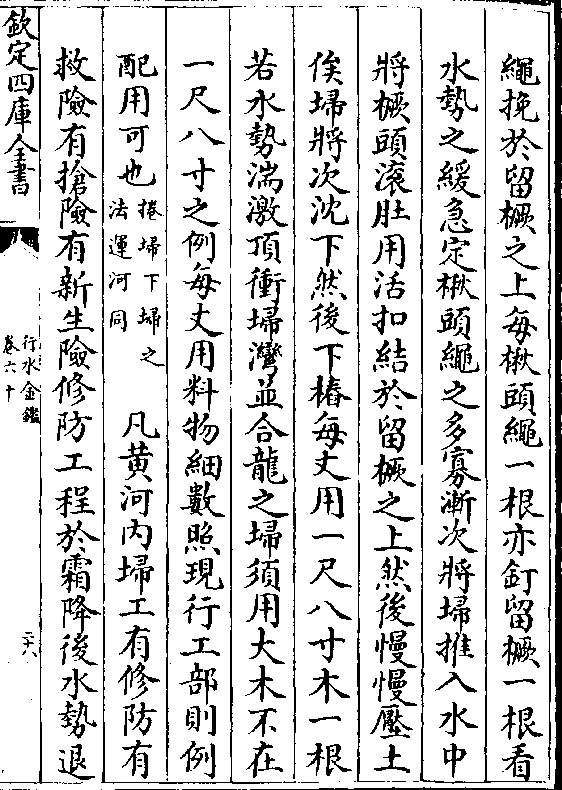 繩挽於留橛之上每楸頭繩一根亦釘留橛一根看
水勢之緩急定楸頭繩之多寡漸次將埽推入水中
將橛頭滚肚用活扣結於留橛之上然後慢慢壓土
俟埽將次沈下然後下樁每丈用一尺八寸木一根
若水勢湍激頂衝埽灣並合龍之埽須用大木不在
一尺八寸之例每丈用料物細數照現行工部則例
配用可也捲埽下埽之法運河同 凡黄河内埽工有修防有
救險有搶險有新生險修防工程於霜降後水勢退
欽定四庫全書
行水金鑑
卷六十
二十八